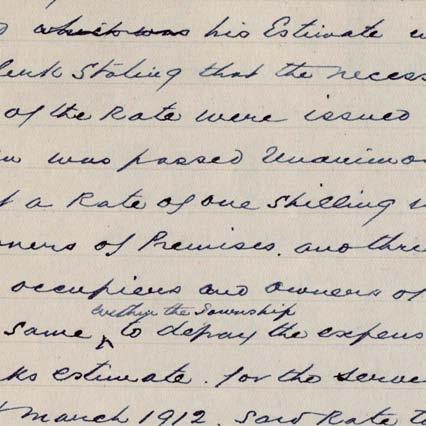 which was his Estimate
Clerk Stating that the necess
of the Rate were issued
was passed Unanimo
a Rate of one Shilling
owners of Premises. another
occupiers and owners of
within the Township
Same ^ to defray the expens
ks estimate. for the serve
March 1912. Said Rate to